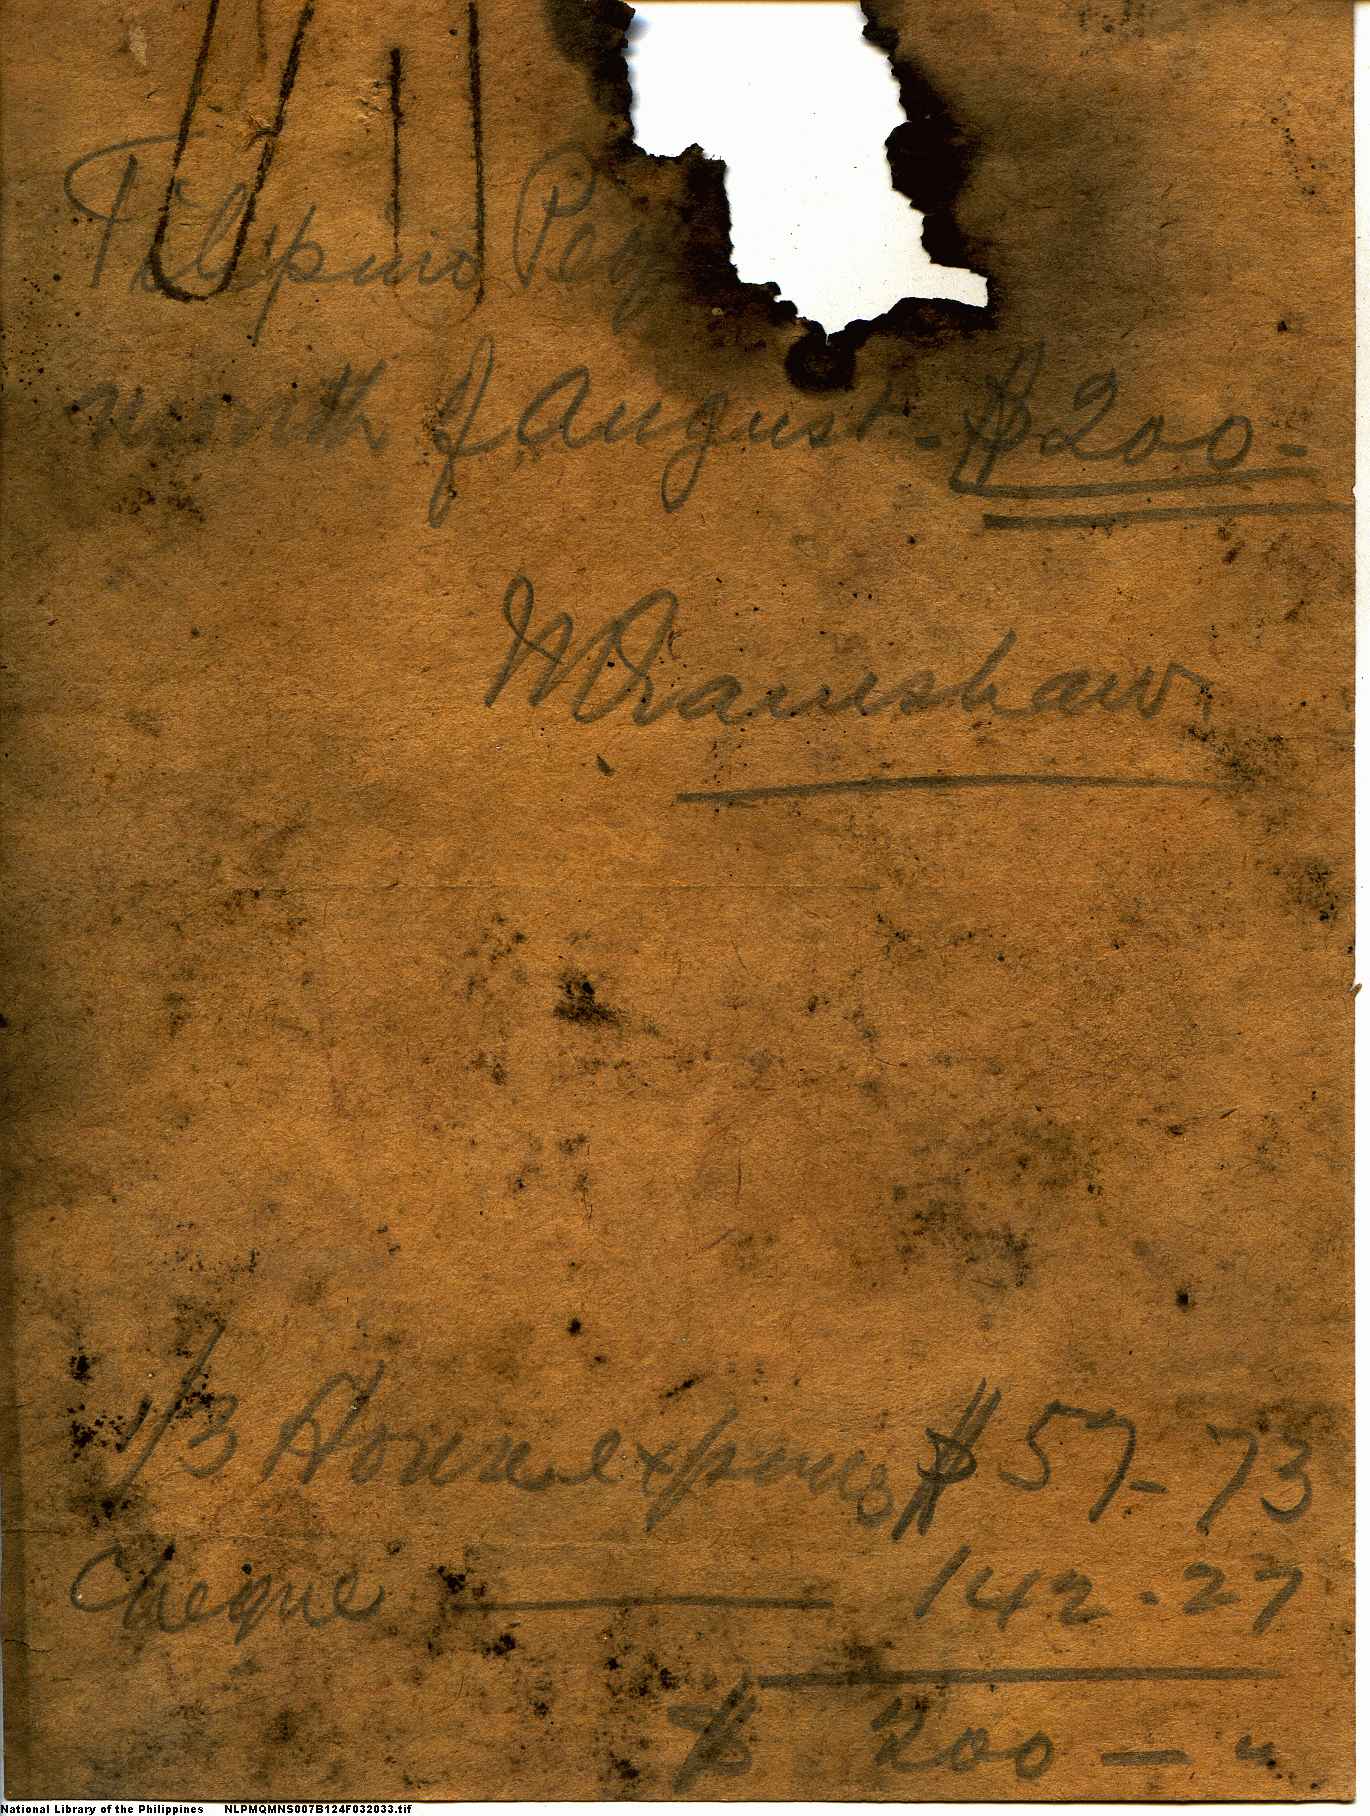 Filipino Peo
month of August - $200 -
1/3 House expenses $57-73
Cheque — 142.27
$ 200 — "
National Library of the Philippines NLPMQMNS007B124F032033.tif